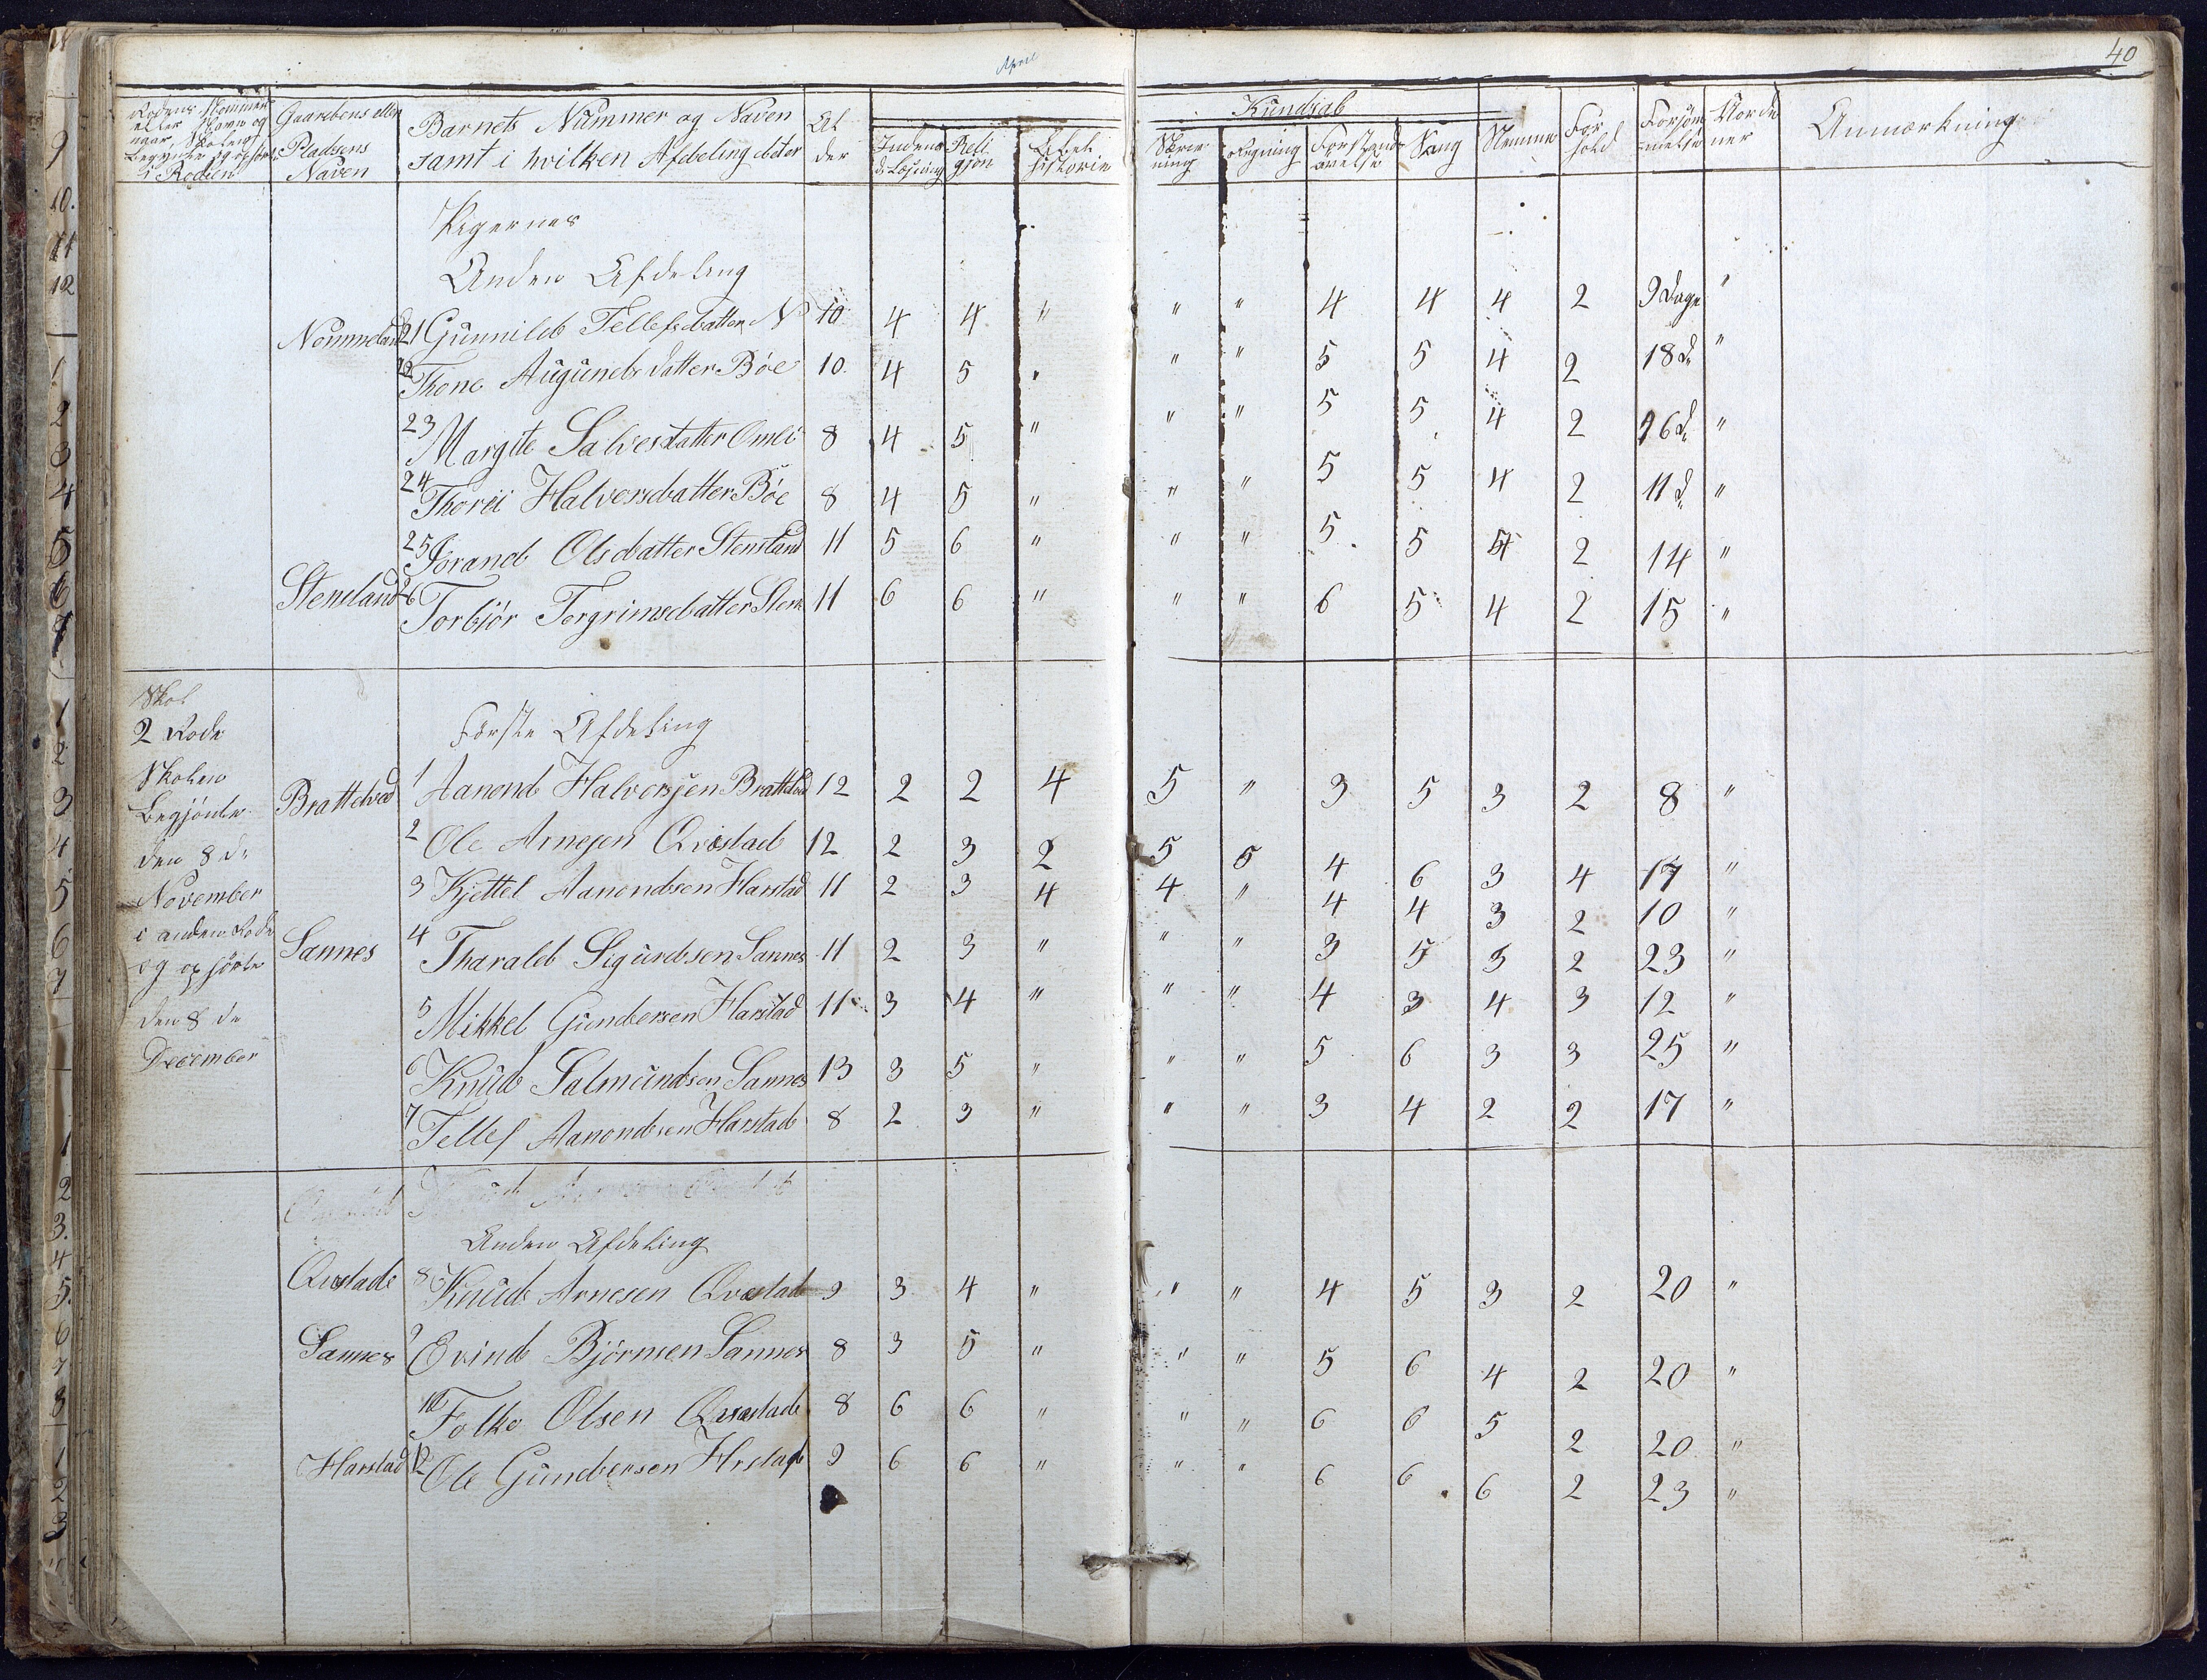 April
40
Gaardens eller
Pladsens
Naven
Barnets Nummer og Naven
samt i hvilken Afdeling det er
Al
der
Kundsab
Religjon
Bibel
historie
Skriv
ning
Regning
Forstand
øvelse
Sang
Nemme
For
hold
Forsøm
melse
Anmærkning
Pigernes
Anden Afdeling
Nommeland 21 Gunnild Tellefsdatter N 10 4 4 " " " 4 4 4 2 9 Dage "
22 Thone Augunds datter Bøe 10. 4 5 " " " 5 5 4 2 18 d "
23 Margite Salvesdatter Omli 8 4 5 " " " 5 5 4 2 26 d "
24 Thorei Halversdatter Bøe 8 4 5 " " " 5 5 4 2 11 d "
25 Jorand Olsdatter Stensland 11 5 6 " " " 5 5 4 2 14 "
Stensland 26 Torbjør Torgrimsdatter Stens 11 6 6 " " " 6 5 4 2 15 "
Skol
2 Rode
Skolen
Begjønte
den 8 de
November
i anden Rode
og ophørte
den 8 de
December
Første Afdeling
Brattelved 1 Aanond Halversen Bratteved 12 2 2 4 5 " 3 5 3 2 8 "
2 Ole Arnesen Qvæstad 12 2 3 2 5 5 4 6 3 4 17 "
3 Kjettel Aanondsen Harstad 11 2 3 4 4 " 4 4 3 2 10 "
Sannes 4 Tharald Sigurdsen Sannes 11 2 3 " " " 3 5 3 2 23 "
5 Mikkel Gundersen Harstad 11 3 4 " " " 4 3 4 3 12 "
6 Knud Salmundsen Sannes 13 3 5 " " " 5 6 3 3 25 "
7 Tellef Aanondsen Harstad 8 2 3 " " " 3 4 2 2 17 "
Anden Afdeling
Qvestade 8 Knud Arnesen Qvæstad 9 3 4 " " " 4 5 3 2 20 "
Sannes 9 Evind Bjørnsen Sannes 8 3 5 " " " 5 6 4 2 20 "
10 Folke Olsen Qvæstade 8 6 6 " " " 6 6 5 2 20 "
Harstad 12 Ole Gundersen Hrstad 9 6 6 " " " 6 6 6 2 23 "